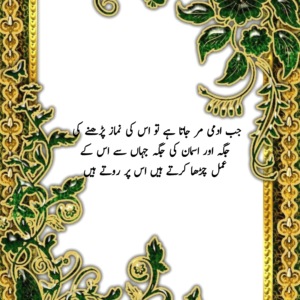 جب ادمی مر جاتا ہے تو اس کی نماز پڑھنے کی
جگہ اور اسمان کی جگہ جہاں سے اس کے
عمل چڑھا کرتے ہیں اس پر روتے ہیں